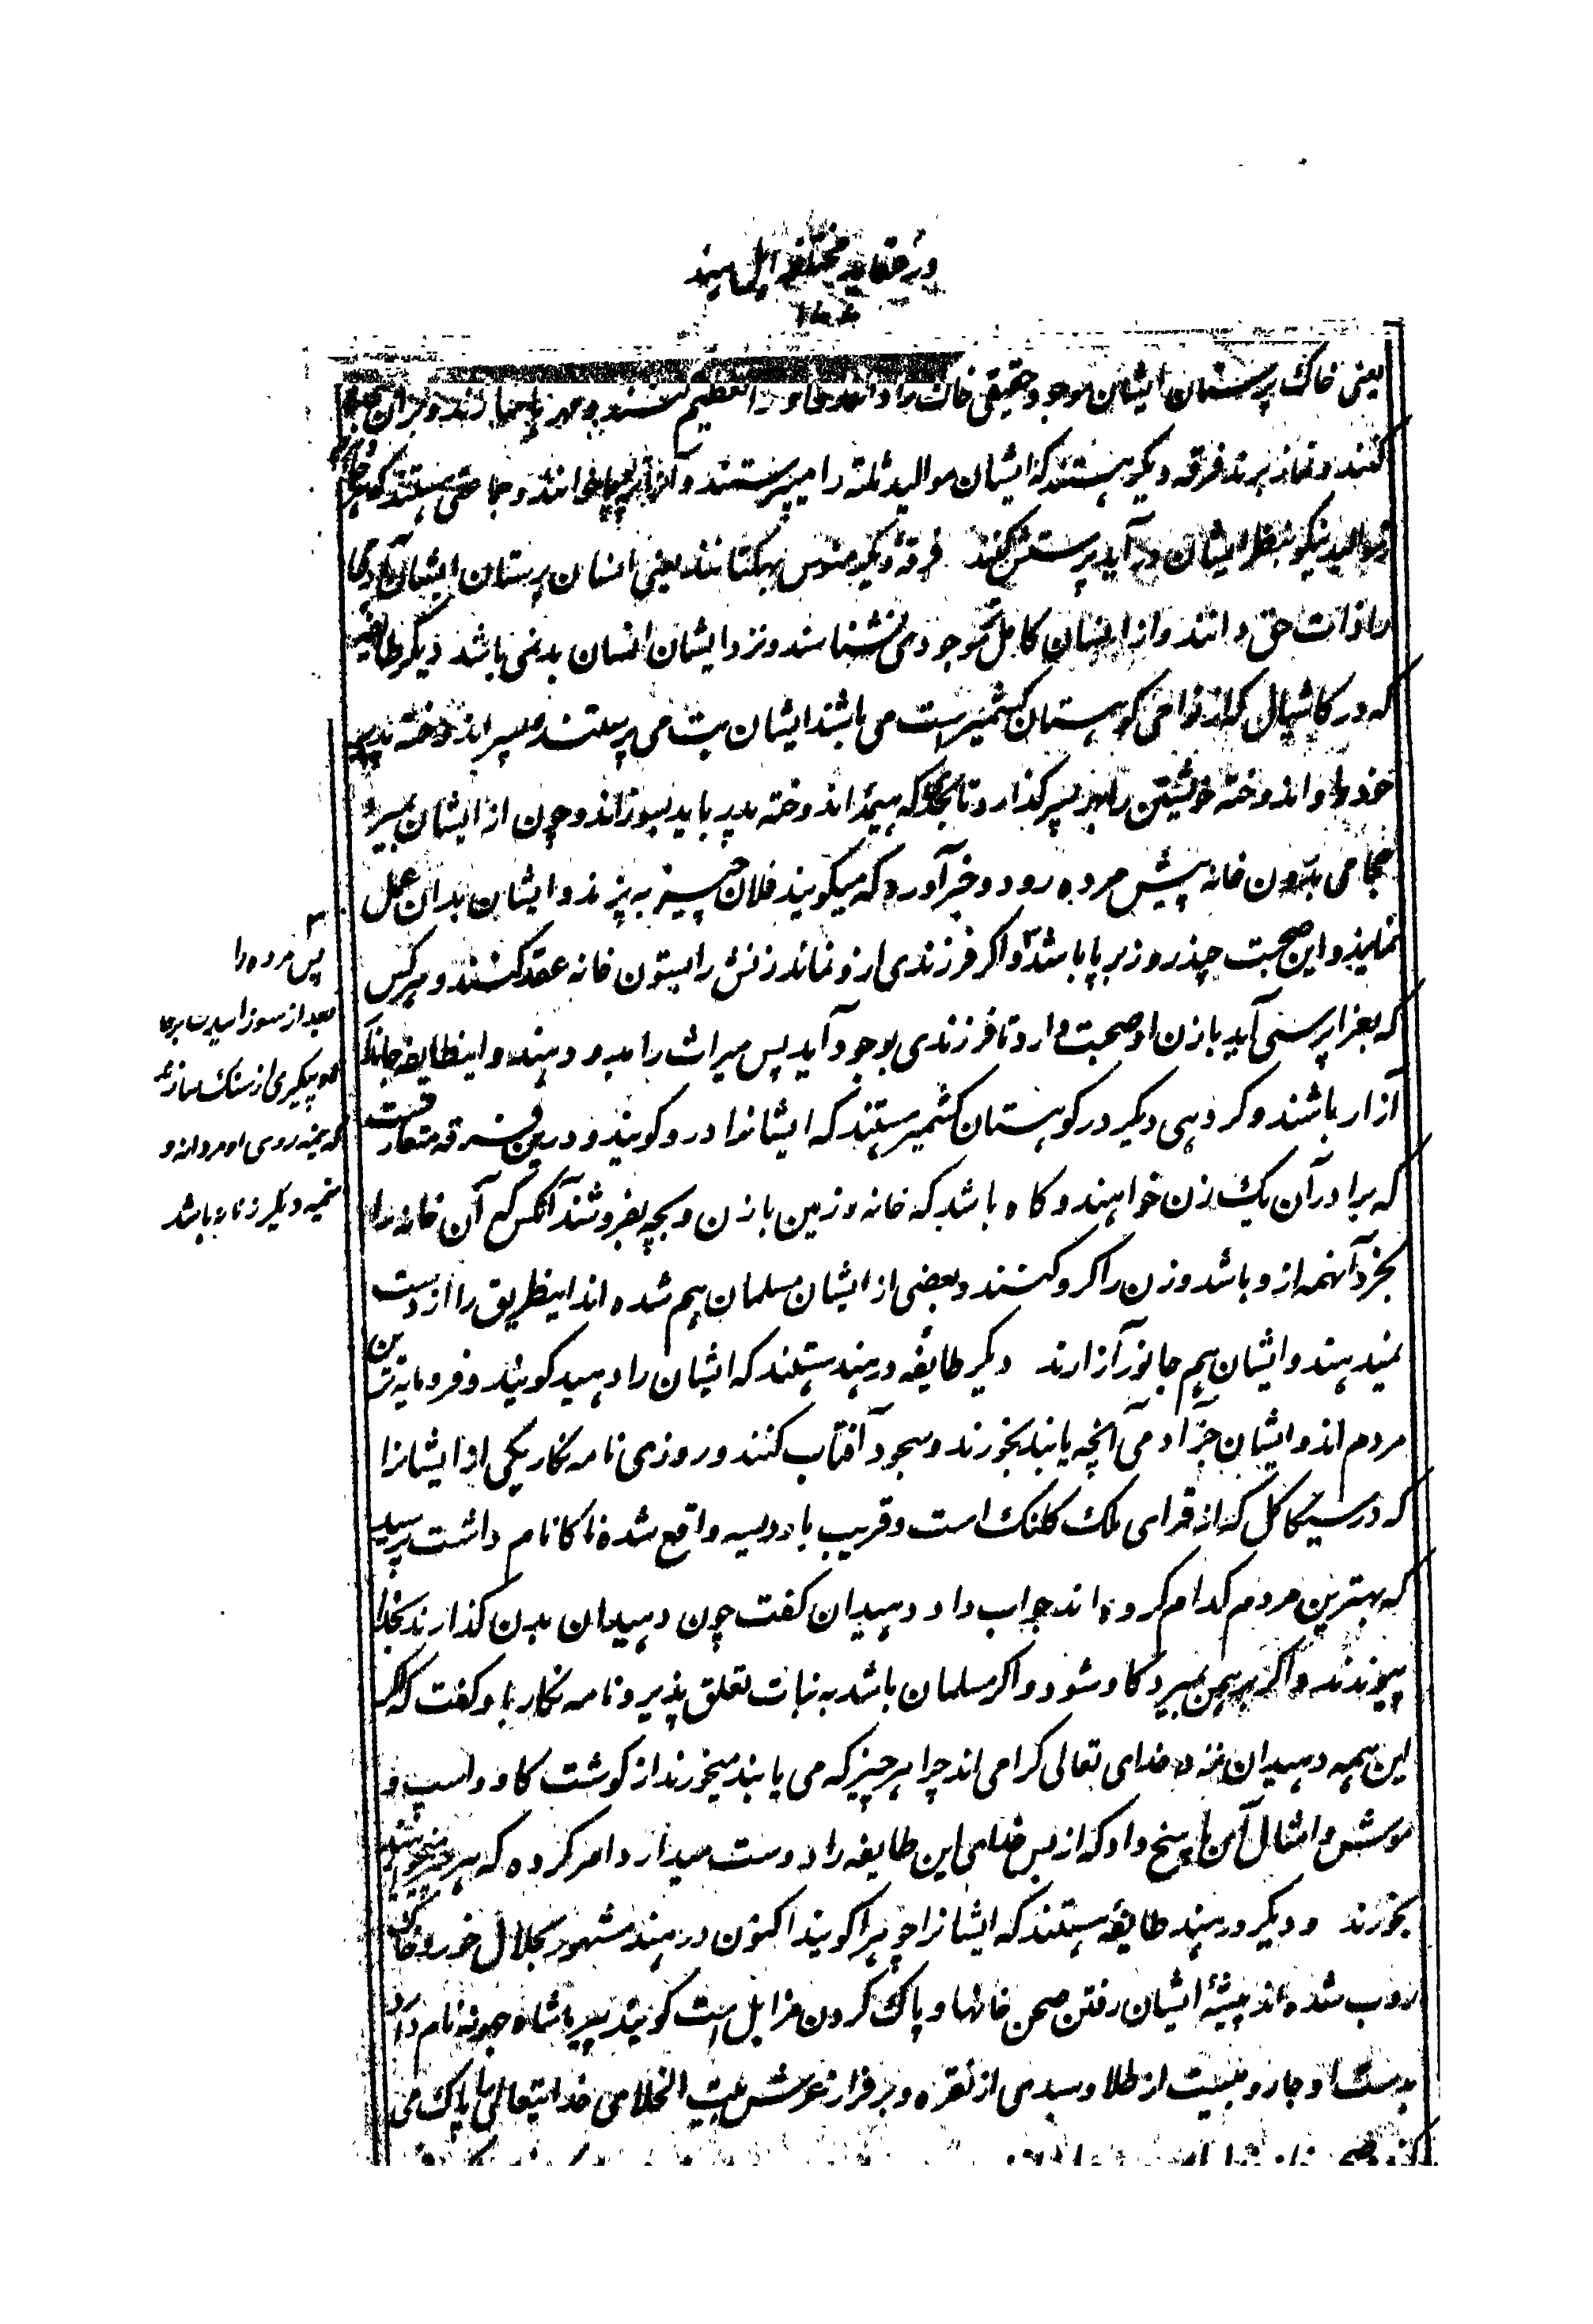 در عقاید مختلفه اهل هند
یعنی خاک پرستان ایشان موجود حقیقی خاک را دانند و خاک را تعظیم کنند و مهرها سازند و بران سجده
کنند و نماز برند فرقه دیگر هستند که ایشان موالید ثلثه را میپرستند و جماعتی هستند که هر چه از
موالید نیکو بنظر ایشان در آید پرستش کنند فرقهٔ دیگر منوس بهکتانند یعنی انسان پرستان ایشان آدمی
را ذات حق دانند و از انسان کامل تر موجودی نشناسند و نزد ایشان انسان بد نمی باشد دیگر طایفه
که در کاشهال که از نواحی کوهستان کشمیر است می باشند ایشان بت می پرستند و پسر اندوخته پدر
خود را و اندوخته خویشتن را بهر پسر گذارد تا بجائی که هیمهٔ اندوخته پدر باید بسوزاند و چون از ایشان بمیرد
حجامی بدرون خانه پیش مرده رود و خبر آورد که میگویند فلان چیز به پزند و ایشان بدان عمل
نمایند و این صحبت چند روز بر پا باشد و اگر فرزندی ازو نماند زنش را بستون خانه عقد کنند و هر کس
که بعزا پرسی آید با زن او صحبت دارد تا فرزندی بوجود آید پس میراث را بدو دهند و اینطایفه جاندار
آزار باشند و گروهی دیگر در کوهستان کشمیر هستند که ایشانرا درو گویند و درین فرقه متعارفست
که برادرآن یک زن خواهند و گاه باشد که خانه و زمین با زن و بچه بفروشند آنکس که آن خانه را
بخرد آنهمه از و باشد و زن را گرو کنند و بعضی از ایشان مسلمان هم شده اند اینطریق را از دست
نمیدهند و ایشان هم جانور آزارند دیگر طایفه در هند هستند که ایشان را دهید گویند و فرومایه ترین
مردم اند و ایشان جز آدمی آنچه یابند بخورند و سجود آفتاب کنند و روزی نامه نگار یکی از ایشانرا
که در سیکاکل که از قرای ملک کلنک است و قریب باودیسه واقع شده ناکا نام داشت پرسید
که بهترین مردم کدام گروه اند جواب داد دهیدان گفت چون دهیدان بدن گذارند بخدا
پیوندند و اگر برهمن بمیرد گاو شود و اگر مسلمان باشد به نبات تعلق پذیرد نامه نگار با و گفت که اگر
این همه دهیدان نزد خدای تعالی گرامی اند چرا هر چیز که می یابند میخورند از گوشت گاو و اسپ و
موش و امثال آن پاسخ داد که از بس خدای این طایفه را دوست میدارد امر کرده که هر چیز خواهند
بخورند و دیگر در هند طایفه هستند که ایشانرا چوهرا گویند اکنون در هند مشهور بحلال خور و خاک
روب شده اند پیشهٔ ایشان رفتن صحن خانها و پاک کردن مزابل است گویند پیر ما شاه جهونه نام دارد
بدست او جاروبیست از طلا و سبدی از نقره و بر فراز عرش بیت الخلامی خدایتعالی را پاک می
پس مرده را
بعد از سوزانیدن بر جا
او پیکری از سنگ سازند
که نیمه روی او مردانه و
نیمه دیگر زنانه باشد